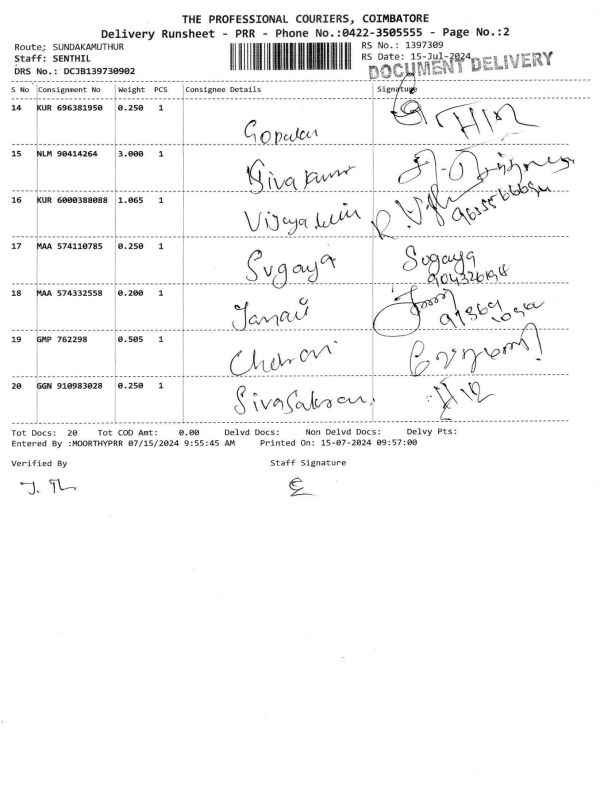 THE PROFESSIONAL COURIERS, COIMBATORE
Delivery Runsheet - PRR - Phone No.:0422-3505555 - Page No.:2
Route: SUNDAKAMUTHUR RS No.: 1397309
Staff: SENTHIL RS Date: 15-Jul-2024
DRS No.: DCJB139730902 DOCUMENT DELIVERY
S No Consignment No Weight PCS Consignee Details Signature
14 KUR 696381950 0.250 1
Gopalan
15 NLM 90414264 3.000 1
Sivakumar
16 KUR 6000388088 1.065 1
17 MAA 574110785 0.250 1
Sugaya Sugaya
18 MAA 574332558 0.200 1
19 GMP 762298 0.505 1
20 GGN 910983028 0.250 1
Tot Docs: 20 Tot COD Amt: 0.00 Delvd Docs: Non Delvd Docs: Delvy Pts:
Entered By :MOORTHYPRR 07/15/2024 9:55:45 AM Printed On: 15-07-2024 09:57:00
Verified By Staff Signature